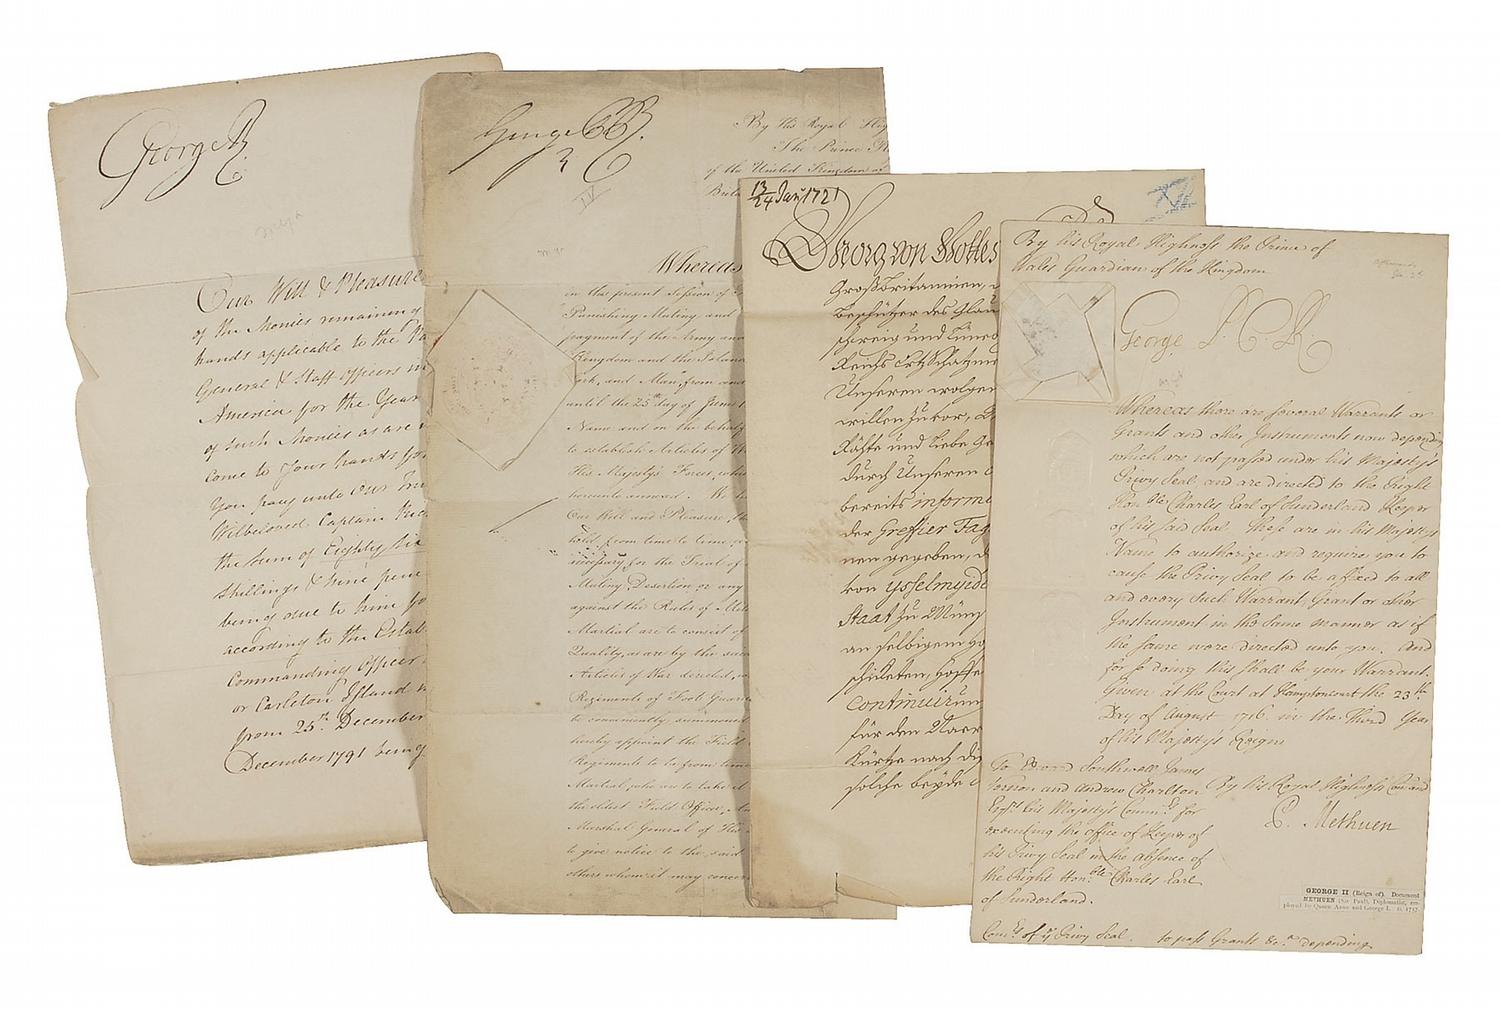 George R.
Our Will & Pleasure
of the Monies remaining
hands applicable to the
General & Staff Officers in
America for the Year
of such Monies as are
come to Your hands for
You pay unto Our
Welbeloved Captain
the Sum of Eighty Six
Shillings & Nine pence
being due to him for
according to the Estab
Commanding Officer
or Carleton Island
from 25th December
December 1791 being
George P R
IV
By His Royal Hig
The Prince
of the United Kingdom of
Brita
Whereas
in this present Session of
Punishing Mutiny and
payment of the Army and
Kingdom and the Island
and Man, from and
until the 25th day of June
Name and in the behalf
to establish Articles of W
His Majesty's Forces,
hereunto annexed. We
Our Will and Pleasure,
hold, from time to time,
necessary, for the Trial of
Mutiny Desertion or any
against the Rules of
Martial are to consist of
Quality, as are by the
Articles of War directed,
Regiments of Foot Guards
to conveniently summoned
hereby appoint the Field
Regiments to be from time
Martial, who are to take
the eldest Field Officer,
Marshal General of His
to give notice to the said
others whom it may concern
13/24 Jan. 1721
Georg von Gottes
Großbritannien,
Beschützer des Glau
schweig und Lüneb
Reichs Ertz Schatzm
Unseren wolgen
willen zuvor,
Räthe und liebe Ge
durch Unseren
bereits informi
der Greffier Fag
nen gegeben, d
von Ysselmuyde
Staat zu Müns
an selbigem
schickten, hoffe
continuir
für den
Kürtze nach di
solche beyde
By his Royal Highness the Prince of
Wales Guardian of the Kingdom
George P. C. R
Whereas there are several Warrants or
Grants and other Instruments now depending
which are not passed under his Majesty's
Privy Seal and are directed to the Right
Honble Charles Earl of Sunderland Keeper
of his said Seal These are in his Majesty's
Name to authorize and require you to
cause the Privy Seal to be affixed to all
and every such Warrant, Grant or other
Instrument in the same manner as if
the same were directed unto you. And
for so doing this shall be your Warrant.
Given at the Court at Hamptoncourt the 23th
Day of August 1716. in the Third Year
of his Majesty's Reign
To Edward Southwell James
Vernon and Andrew Charlton
Esqrs his Majesty's Commrs for
executing the office of Keeper of
his Privy Seal in the absence of
the Right Honble Charles Earl
of Sunderland.
By his Royal Highness's Command
P. Methuen
GEORGE II (Reign of). Document
METHUEN (Sir Paul), Diplomatist, em-
ployed by Queen Anne and George I.
Comrs of ye Privy Seal. to pass Grants &c. depending